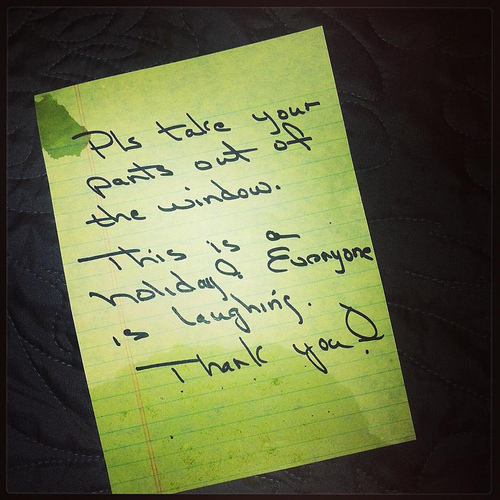 Pls take your
pants out of
the window.
This is a
holiday! Everyone
is laughing.
Thank you!